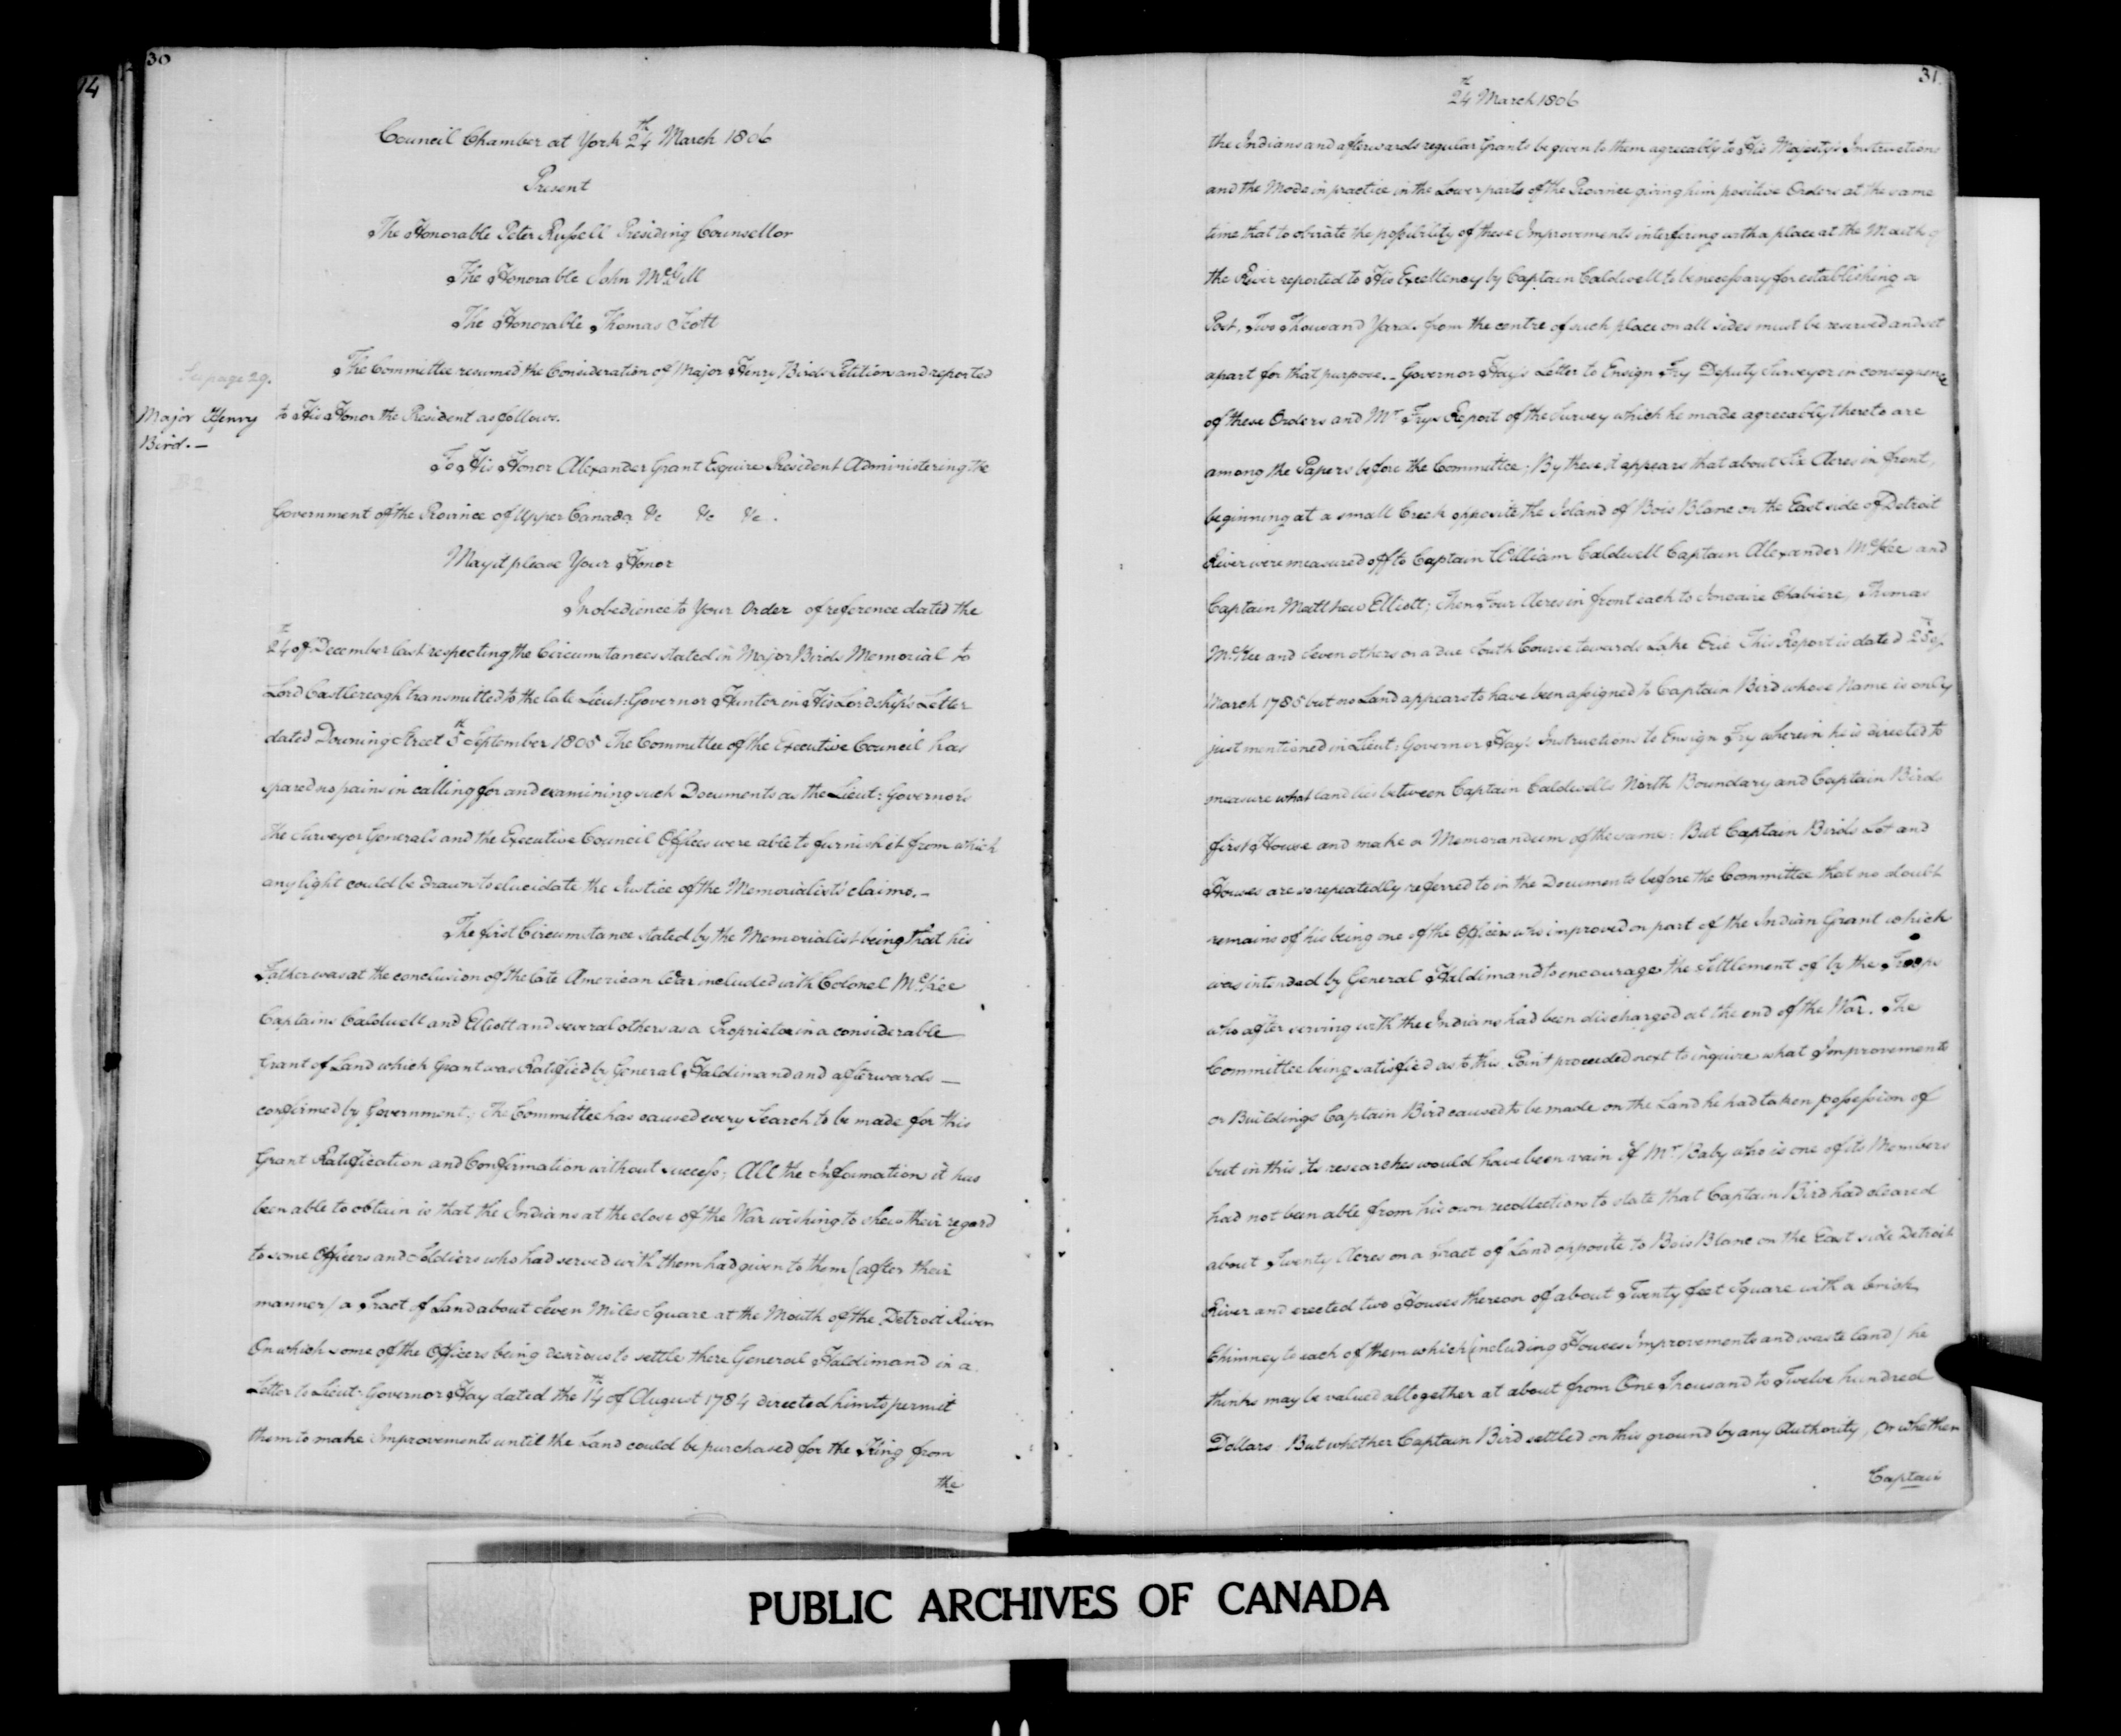 30
Council Chamber at York 24th March 1806
Present
The Honorable Peter Russell Presiding Counsellor
The Honorable John McGill
The Honorable Thomas Scott
See page 29.
Major Henry
Bird.—
The Committee resumed the Consideration of Major Henry Birds Petition and reported
to His Honor the President as follows.
To His Honor Alexander Grant Esquire President Administering the
Government of the Province of Upper Canada &c &c &c.
May it please Your Honor
In obedience to Your Order of reference dated the
24th of December last respecting the Circumstances stated in Major Birds Memorial to
Lord Castlereagh transmitted to the late Lieut: Governor Hunter in His Lordship's Letter
dated Downing Street 5th September 1805 The Committee of the Executive Council has
spared no pains in calling for and examining such Documents as the Lieut: Governor's
the Surveyor General's and the Executive Council Offices were able to furnish it from which
any light could be drawn to elucidate the Justice of the Memorialist's claims.—
The first Circumstance stated by the Memorialist being that his
Father was at the conclusion of the late American War included with Colonel McKee
Captains Caldwell and Elliott and several others as a Proprietor in a considerable
Grant of Land which Grant was Ratified by General Haldimand and afterwards —
confirmed by Government; The Committee has caused every Search to be made for this
Grant Ratification and Confirmation without success; All the Information it has
been able to obtain is that the Indians at the close of the War wishing to shew their regard
to some Officers and Soldiers who had served with them had given to them (after their
manner) a Tract of Land about Seven Miles Square at the Mouth of the Detroit River
On which some of the Officers being desirous to settle there General Haldimand in a
Letter to Lieut: Governor Hay dated the 14th of August 1784 directed him to permit
them to make Improvements until the Land could be purchased for the King from
the
31.
24th March 1806
the Indians and afterwards regular Grants be given to them agreeably to His Majesty's Instructions
and the Mode in practice in the Lower parts of the Province giving him positive Orders at the same
time that to obviate the possibility of these Improvements interfering with a place at the Mouth of
the River reported to His Excellency by Captain Caldwell to be necessary for establishing a
Post, Two Thousand Yards from the centre of such place on all sides must be reserved and set
apart for that purpose.. Governor Hay's Letter to Ensign Fry Deputy Surveyor in consequence
of these Orders and Mr Frys Report of the Survey which he made agreeably thereto are
among the Papers before the Committee; By these it appears that about Six Acres in front,
beginning at a small Creek opposite the Island of Bois Blanc on the East side of Detroit
River were measured off to Captain William Caldwell Captain Alexander McKee and
Captain Matthew Elliott; Then Four Acres in front each to Chabiere, Thomas
McKee and Seven others on a due South Course towards Lake Erie This Report is dated 25th of
March 1785 but no Land appears to have been assigned to Captain Bird whose Name is only
just mentioned in Lieut: Governor Hay's Instructions to Ensign Fry wherein he is directed to
measure what land lies between Captain Caldwells North Boundary and Captain Birds
first House and make a Memorandum of the same: But Captain Birds Lot and
Houses are so repeatedly referred to in the Documents before the Committee that no doubt
remains of his being one of the Officers who improved on part of the Indian Grant which
was intended by General Haldimand to encourage the Settlement of by the Troops
who after serving with the Indians had been discharged at the end of the War. The
Committee being satisfied as to this Point proceeded next to inquire what Improvements
or Buildings Captain Bird caused to be made on the Land he had taken possession of
but in this its researches would have been vain if Mr Baby who is one of its Members
had not been able from his own recollection to state that Captain Bird had cleared
about Twenty Acres on a Tract of Land opposite to Bois Blanc on the East side Detroit
River and erected two Houses thereon of about Twenty feet square with a brick
Chimney to each of them which (including Houses Improvements and waste land) he
thinks may be valued altogether at about from One Thousand to Twelve hundred
Dollars: But whether Captain Bird settled on this ground by any Authority, or whether
Captain
PUBLIC ARCHIVES OF CANADA